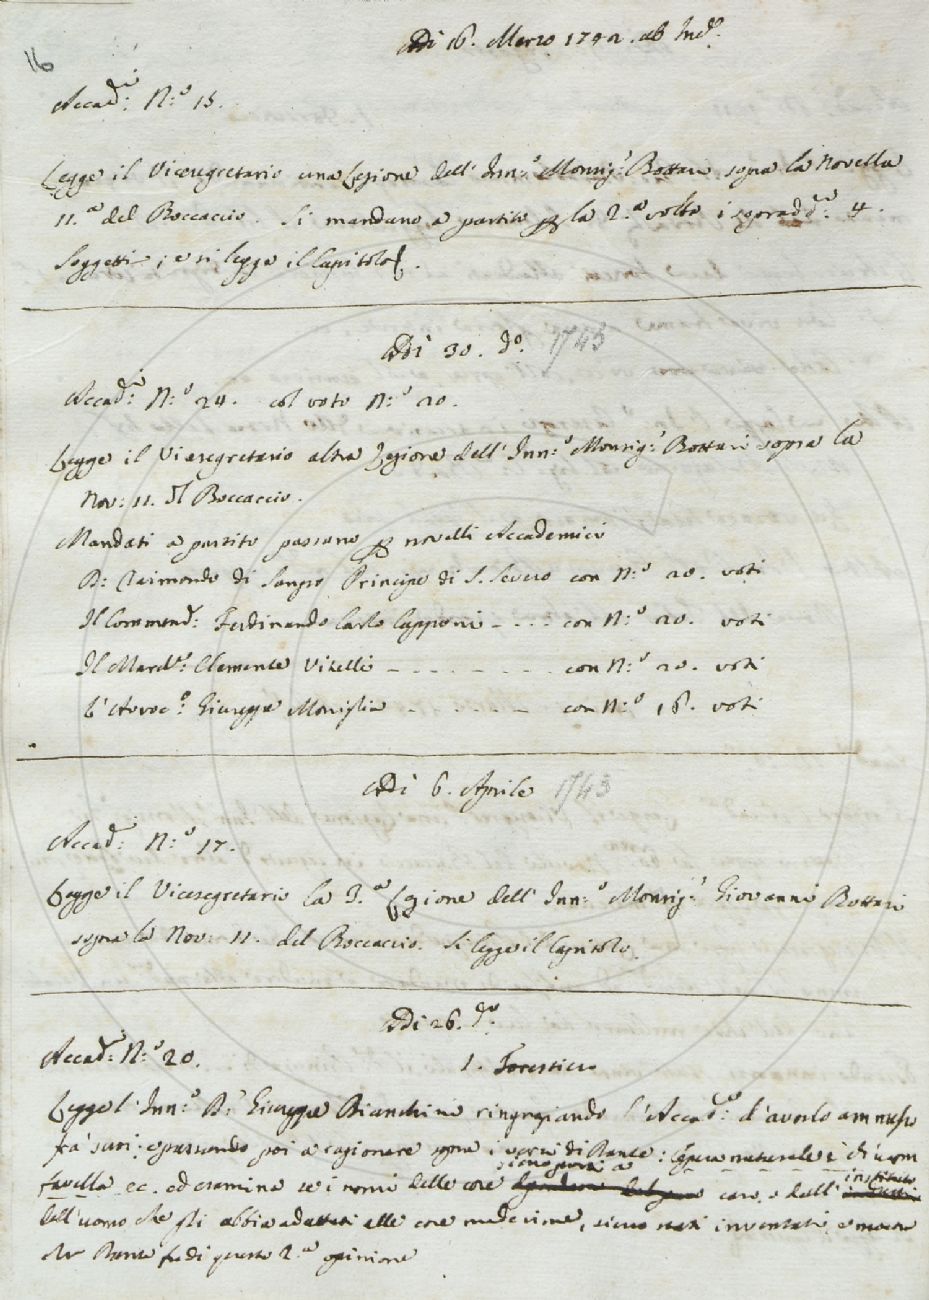 16
Adì 16. Marzo 1742. ab Inc.º
Accad.ci N:º 15.
Legge il Vicesegretario una Lezione dell' Inn:º Monsig.r Bottari sopra la Novella
11.a del Boccaccio. Si mandano a partito p la 2.a volta i sopradd.i 4.
Soggetti; e si legge il Capitolo.
Adì 30. d.º 1743
Accad.ci N:º 24. col voto N:º 20.
Legge il Vicesegretario altra Lezione dell' Inn:º Monsig.r Bottari sopra la
Nov: 11. del Boccaccio.
Mandati a partito passano p novelli Accademici
D: Raimondo di Sangro Principe di S. Severo con N:º 20. voti
Il Commend.r Ferdinando Carlo Capponi - - - - con N:º 20. voti
Il March.e Clemente Vitelli - - - - - - - con N:º 20. voti
L'Avvoc.º Giuseppe Moniglia - - - - - - con N:º 18. voti
Adì 6. Aprile 1743
Accad.ci N:º 17.
Legge il Vicesegretario la 3.a Lezione dell' Inn:º Monsig.r Giovanni Bottari
sopra la Nov: 11. del Boccaccio. Si legge il Capitolo.
Adì 26. d.º
Accad.ci N:º 20. 1. Forestiero
Legge l'Inn:º D.r Giuseppe Bianchini ringraziando l'Accad.a d'averlo ammesso
fra' suoi; e passando poi a ragionare sopra i versi di Dante: Opera naturale è ch'uom
favella ec. ed esamina se i nomi delle cose siano posti a caso, o dall' instituto
dell'uomo che gli abbia adattati alle cose medesime, sieno stati inventati, e mostra
che Dante fu di questa 2.a opinione